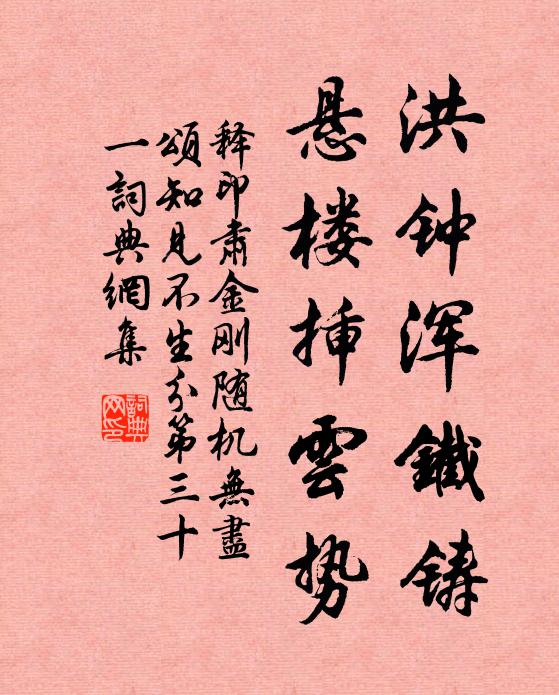 洪钟浑鐵铸
悬楼挿雲势
释印肃金刚随机無盡
頌知见不生分第三十
一詞典網集
詞典
网印